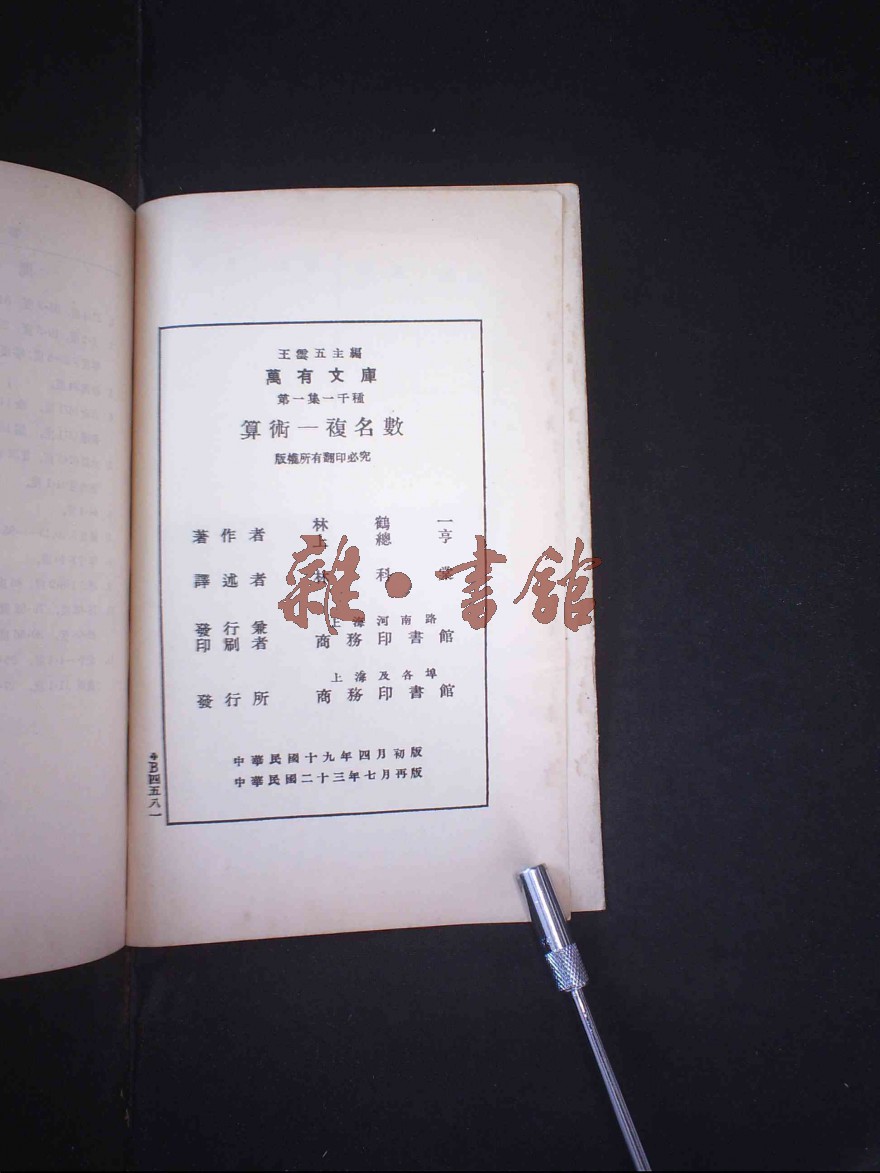 王雲五主編
萬有文庫
第一集一千種
算術—複名數
版權所有翻印必究
著作者 林鶴一
上總亨
譯述者 林科棠
發行兼印刷者 上海河南路
商務印書館
發行所 上海及各埠
商務印書館
中華民國十九年四月初版
中華民國二十三年七月再版
B四五八一
雜·書館